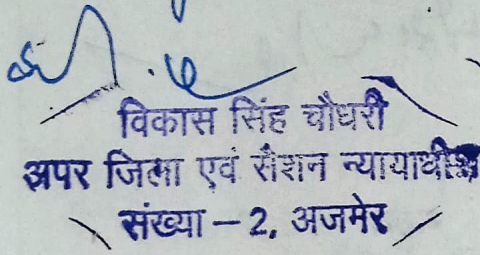 विकास सिंह चौधरी
अपर जिला एवं सैशन न्यायाधीश
संख्या – 2, अजमेर